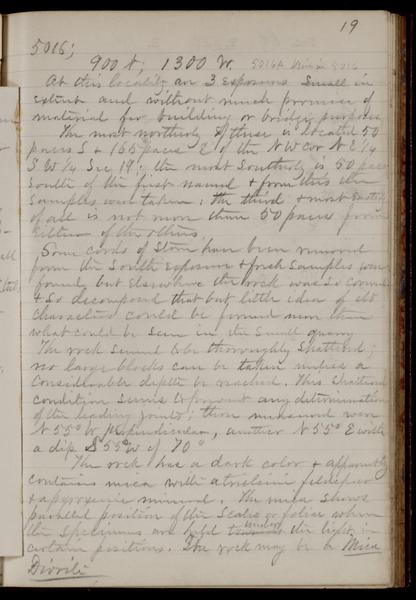 19
5016;
900 N; 1300 W. 5016A
At this locality are 3 exposures small in
extent and without much promise of
material for building or bridge purposes
The most northerly of these is located 50
paces S & 165 paces E of the NW cor NE 1/4
SW 1/4 Sec 19; the most Southerly is 50 paces
south of the first named & from this the
samples were taken; the third & most Easterly
of all is not more than 50 paces from
either of the others.
Some cords of stone have been removed
from the South exposure & fresh samples were
found but elsewhere the rock was so
& so decomposed that but little idea of its
characters could be formed more than
what could be seen in the small quarry
The rock seemed to be thoroughly shattered;
no large blocks can be taken unless a
considerable depth be reached. This shattered
condition seems to prevent any determination
of the leading joints; three measured were
N 55° W perpendicular, another N 55° E with
a dip S 55° W of 70°
The rock has a dark color & apparently
contains mica with a feldspar
& a pyroxenic mineral. The mica shows
parallel position of the scales or foliae when
the specimens are held towards the light in
certain positions. The rock may be a Mica
Diorite